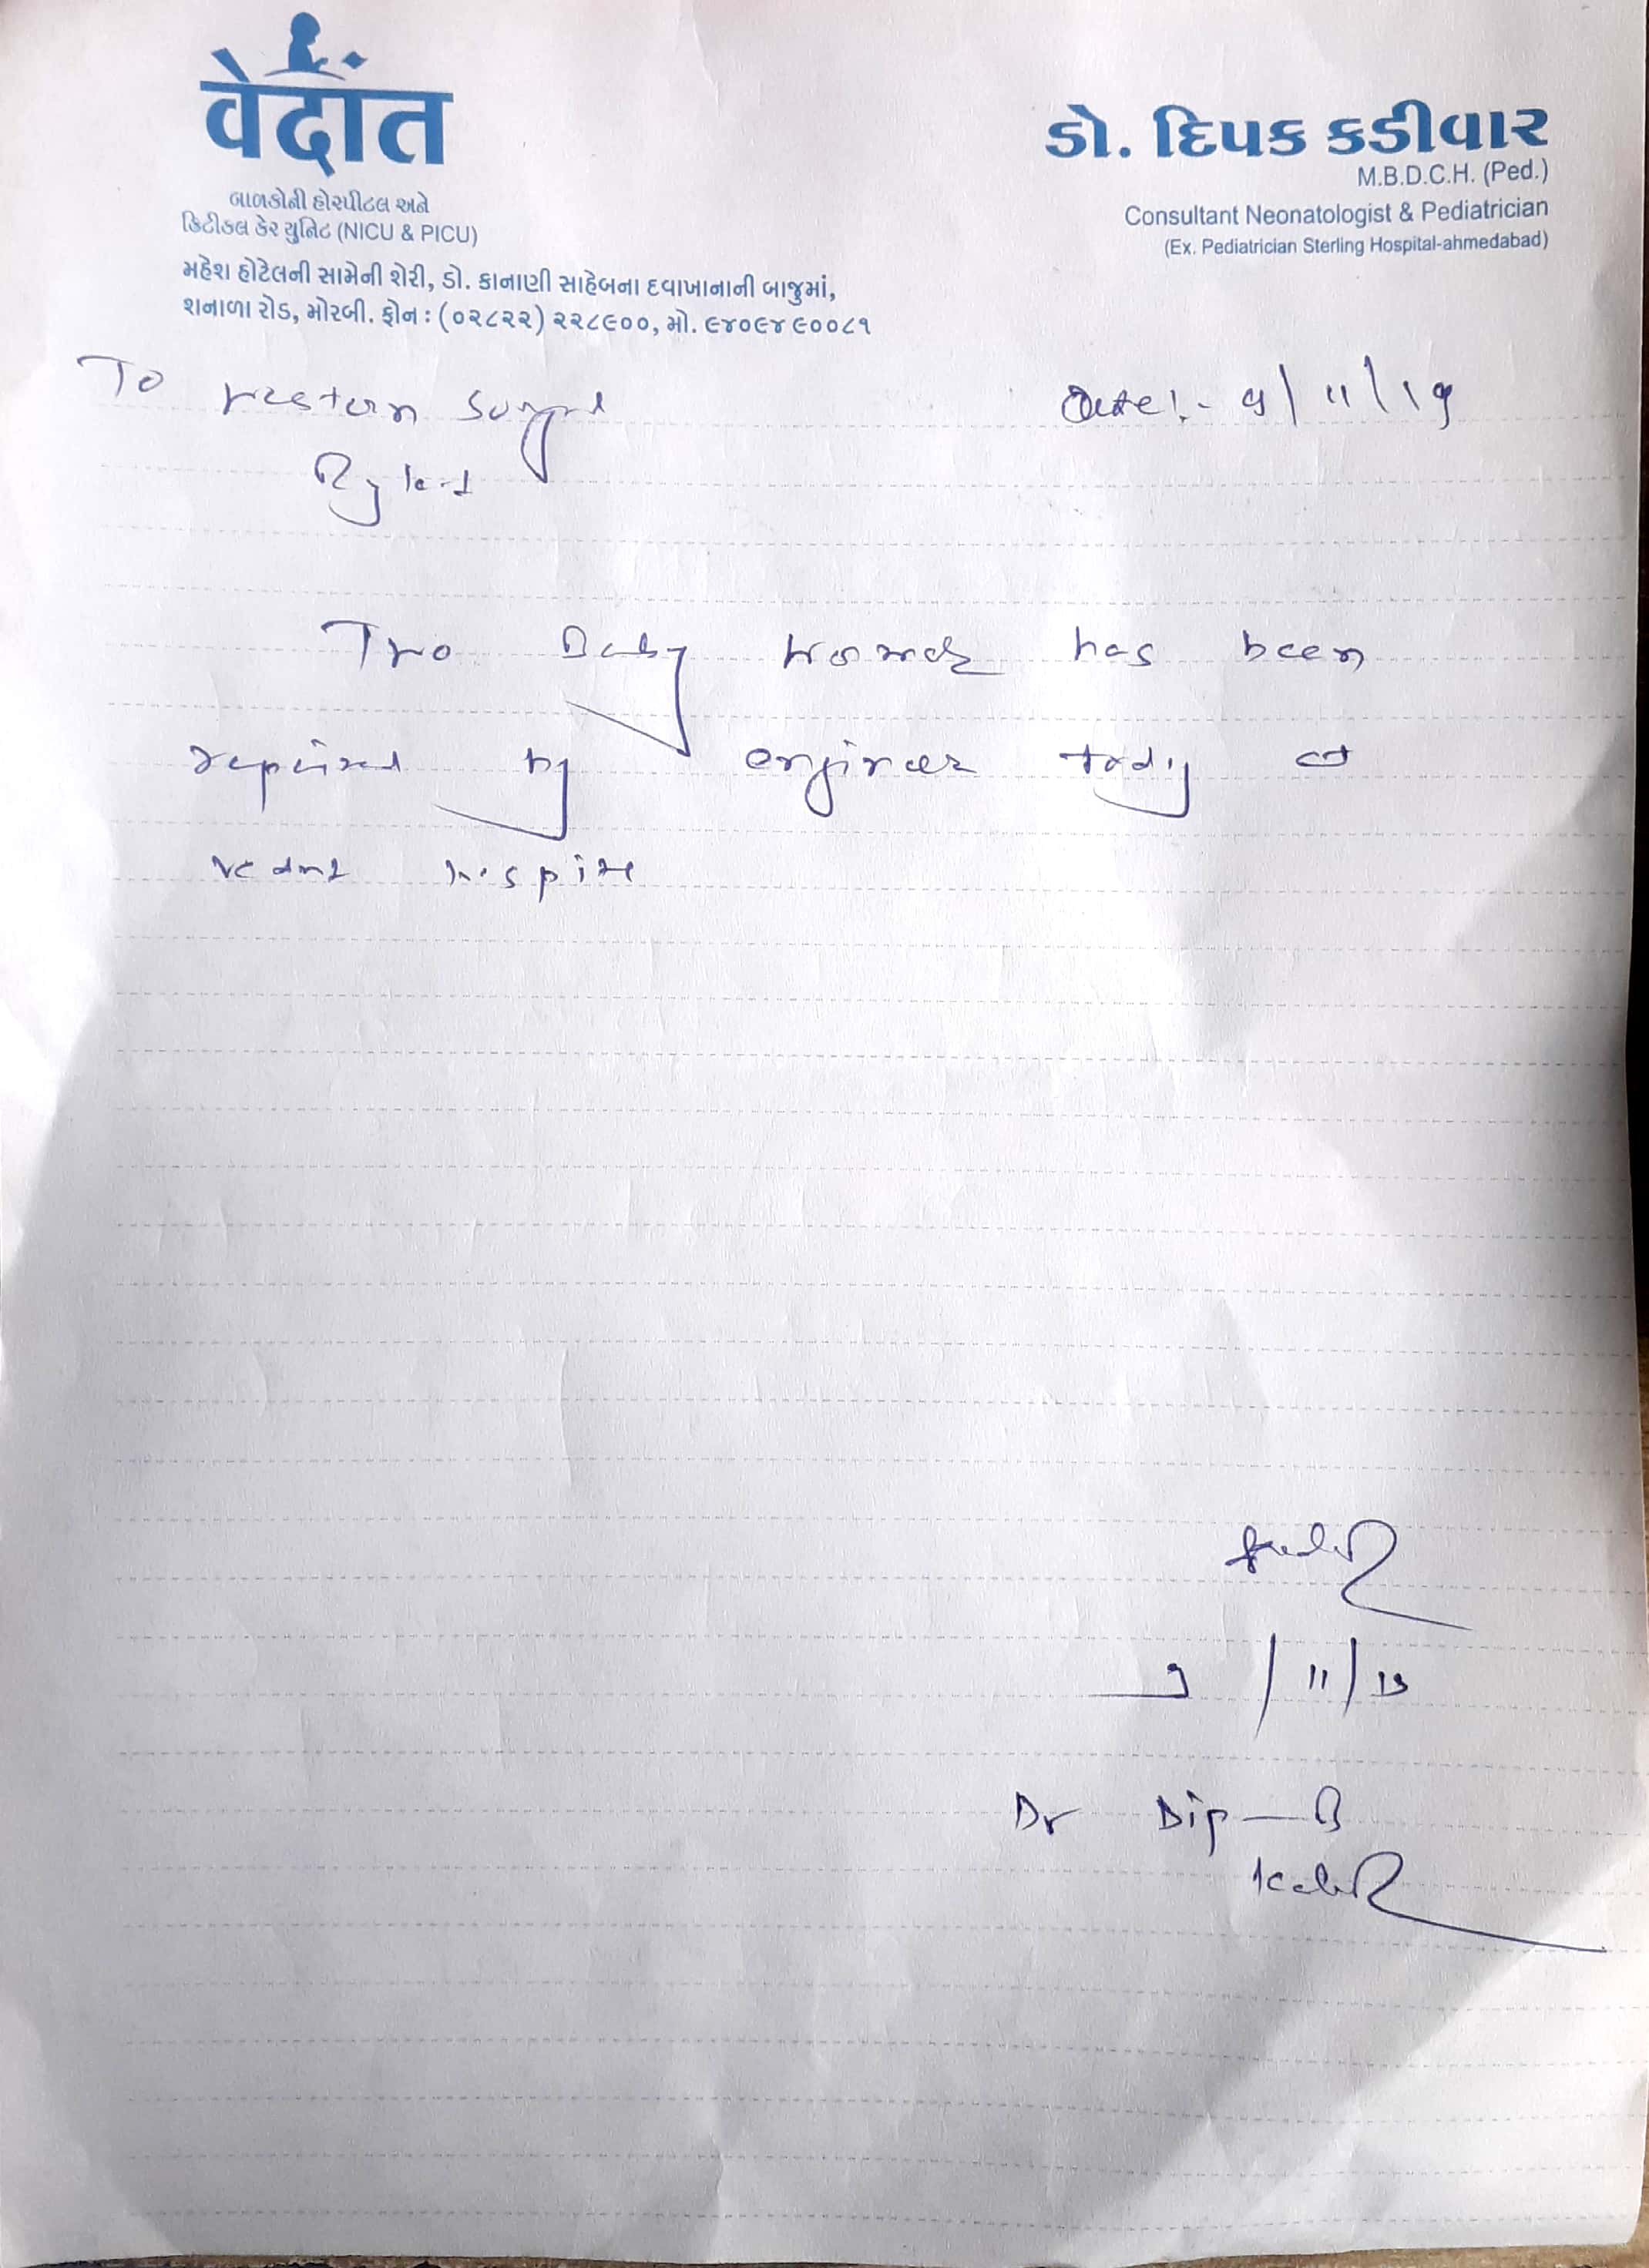 વેદાંત
બાળકોની હોસ્પીટલ અને
ક્રિટીકલ કેર યુનિટ (NICU & PICU)
મહેશ હોટેલની સામેની શેરી, ડો. કાનાણી સાહેબના દવાખાનાની બાજુમાં,
શનાળા રોડ, મોરબી. ફોન : (૦૨૮૨૨) ૨૨૮૯૦૦, મો. ૯૪૦૯૪ ૯૦૦૮૧
ડો. દિપક કડીવાર
M.B.D.C.H. (Ped.)
Consultant Neonatologist & Pediatrician
(Ex. Pediatrician Sterling Hospital-ahmedabad)
To western
Date:- 9/11/19
Two Baby has been
repaired by engineer today at
hospital
/11/19
Dr